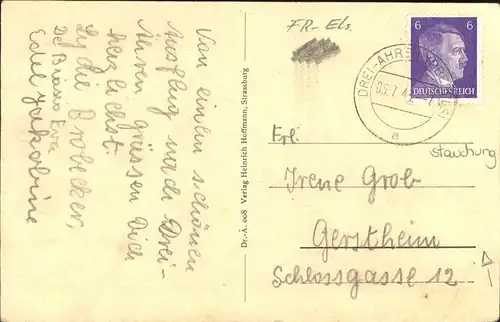 Von einen schönen
Ausflug nach Drei-
Ähren grüssen Dich
herzlichst.
Lydie Brobecker,
Eva
Edel Jakobine
Dr.-Ä. 008 Verlag Heinrich Hoffmann, Strassburg
FR-Els.
6 6
DEUTSCHES REICH
DREI-AHR
a
Stauchung
Frl.
Irene Grob
Gerstheim
Schlossgasse 12